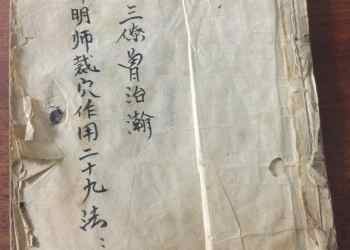 三僚曾治瀚
明师裁穴作用二十九法